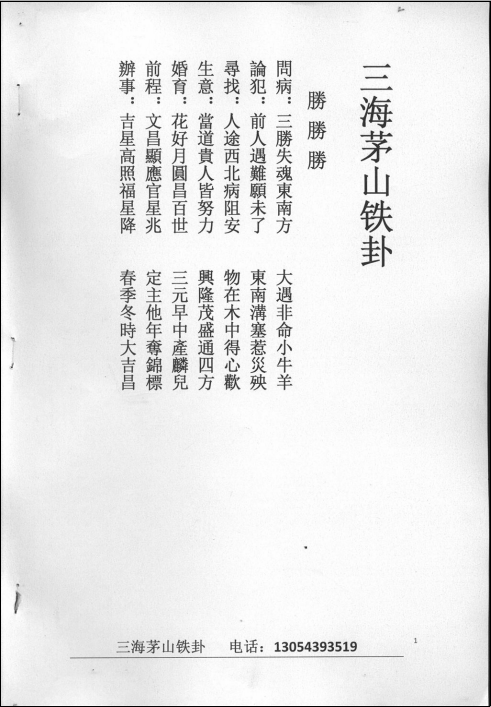 三海茅山铁卦
勝勝勝
問病：三勝失魂東南方　大遇非命小牛羊
論犯：前人遇難願未了　東南溝塞惹災殃
尋找：人途西北病阻安　物在木中得心歡
生意：當道貴人皆努力　興隆茂盛通四方
婚育：花好月圓昌百世　三元早中產麟兒
前程：文昌顯應官星兆　定主他年奪錦標
辦事：吉星高照福星降　春季冬時大吉昌
三海茅山铁卦　电话：13054393519
1